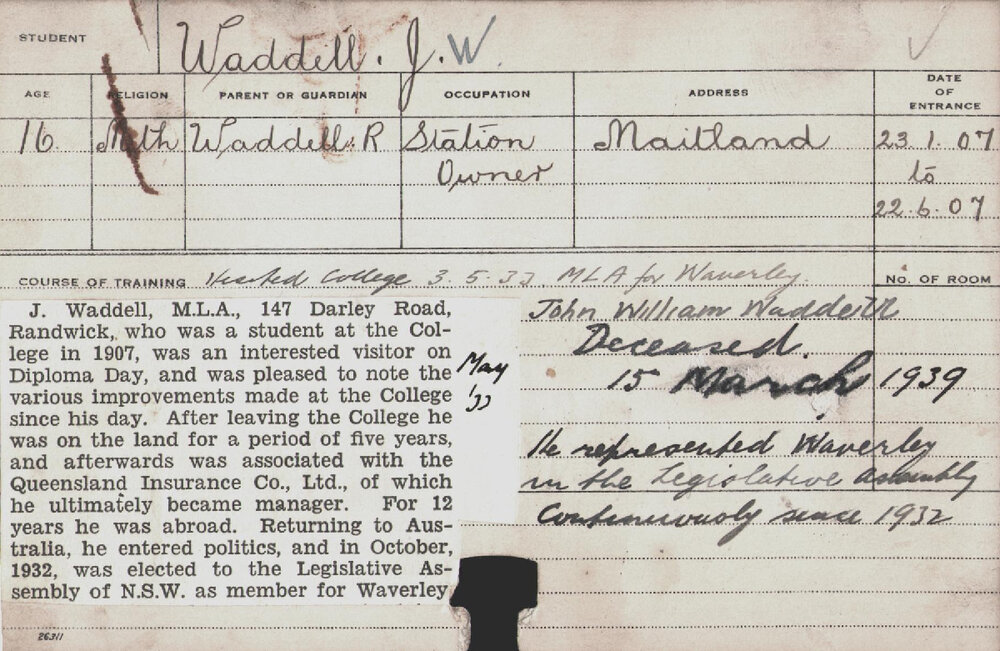 STUDENT Waddell. J. W.
AGE RELIGION PARENT OR GUARDIAN OCCUPATION ADDRESS DATE OF ENTRANCE
16 Meth Waddell. R Station Owner Maitland 23.1.07
to
22.6.07
COURSE OF TRAINING Visited College 3.5.33. MLA for Waverley. No. OF ROOM
J. Waddell, M.L.A., 147 Darley Road,
Randwick, who was a student at the Col-
lege in 1907, was an interested visitor on
Diploma Day, and was pleased to note the
various improvements made at the College
since his day. After leaving the College he
was on the land for a period of five years,
and afterwards was associated with the
Queensland Insurance Co., Ltd., of which
he ultimately became manager. For 12
years he was abroad. Returning to Aus-
tralia, he entered politics, and in October,
1932, was elected to the Legislative As-
sembly of N.S.W. as member for Waverley
May
'33
John William Waddell
Deceased.
15 March 1939
He represented Waverley
in the Legislative Assembly
Continuously since 1932
26311